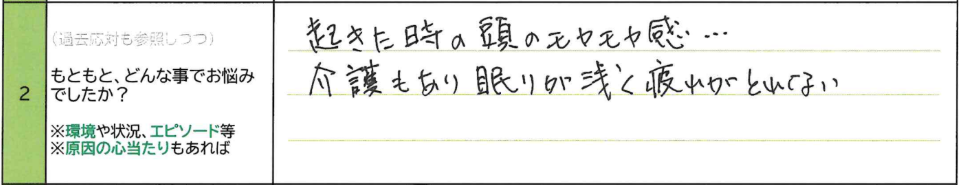 (過去応対も参照しつつ)
2
もともと、どんな事でお悩み
でしたか?
※環境や状況、エピソード等
※原因の心当たりもあれば
起きた時の頭のモヤモヤ感…
介護もあり眠りが浅く疲れがとれてない